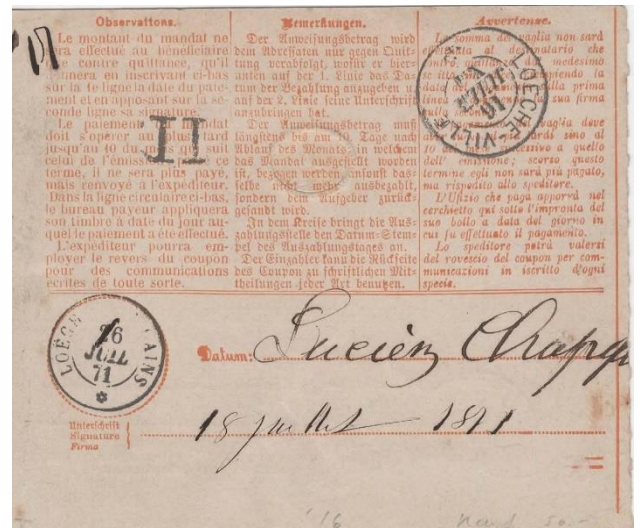 Observations.
Le montant du mandat ne
sera effectué au bénéficiaire
contre quittance, qu'il
donnera en inscrivant ci-bas
sur la 1e ligne la date du paie-
ment et en apposant sur la se-
conde ligne sa signature.
Le paiement du mandat
doit s'opérer au plus tard
jusqu'au 10 du mois qui suit
celui de l'émission
terme, il ne sera plus payé,
mais renvoyé à l'expéditeur.
Dans la ligne circulaire ci-bas,
le bureau payeur appliquera
son timbre à date du jour au-
quel le paiement a été effectué.
L'expéditeur pourra em-
ployer le revers du coupon
pour des communications
écrites de toute sorte.
Bemerkungen.
Der Anweisungsbetrag wird
dem Adressaten nur gegen Quit-
tung verabfolgt, wofür er hier-
unten auf der 1. Linie das Da-
tum der Bezahlung anzugeben u.
auf der 2. Linie seine Unterschrift
anzubringen hat.
Der Anweisungsbetrag muß
längstens bis am 10. Tage nach
Ablauf des Monats, in welchem
das Mandat ausgestellt worden
ist, bezogen werden, ansonst das-
selbe nicht mehr ausbezahlt,
sondern dem Aufgeber zurück-
gesandt wird.
In dem Kreise bringt die Aus-
zahlungsstelle den Datum-Stem-
pel des Auszahlungstages an.
Der Einzahler kann die Rückseite
des Coupon zu schriftlichen Mit-
theilungen jeder Art benutzen.
Avvertenze.
La somma del vaglia non sarà
al destinatario che
medesimo
la
prima
linea sua firma
seconda.
vaglia deve
tardi sino al
10 a quello
dell' emissione; scorso questo
termine egli non sarà più pagato,
ma rispedito allo speditore.
L'Ufizio che paga apporrà nel
cerchietto qui sotto l'impronta del
suo bollo a data del giorno in
cui fu effettuato il pagamento.
Lo speditore potrà valersi
del rovescio del coupon per com-
municazioni in iscritto d'ogni
specie.
LOËCHE-VILLE
II
LOËCHE BAINS
16
JUIL
71
Datum: Lucien
Unterschrift
Signature
Firma
18 juillet 1871